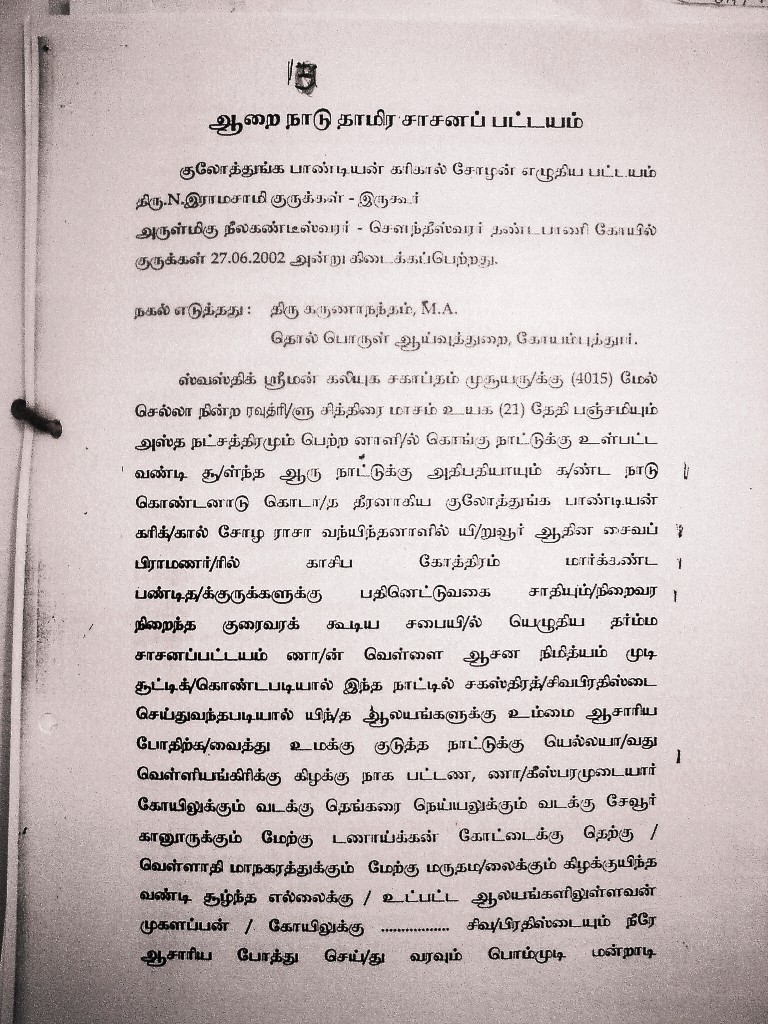 ஆறை நாடு தாமிர சாசனப் பட்டயம்
குலோத்துங்க பாண்டியன் கரிகால் சோழன் எழுதிய பட்டயம்
திரு.N.இராமசாமி குருக்கள் - இருகூர்
அருள்மிகு நீலகண்டீஸ்வரர் - சௌந்தீஸ்வரர் தண்டபாணி கோயில்
குருக்கள் 27.06.2002 அன்று கிடைக்கப்பெற்றது.
நகல் எடுத்தது : திரு கருணாநந்தம், M.A.
தொல் பொருள் ஆய்வுத்துறை, கோயம்புத்தூர்.
ஸ்வஸ்திக் ஸ்ரீமன் கலியுக சகாப்தம் முசூயரு/க்கு (4015) மேல்
செல்லா நின்ற ரவுத்ரி/ளு சித்திரை மாசம் உயக (21) தேதி பஞ்சமியும்
அஸ்த நட்சத்திரமும் பெற்ற னாளி/ல் கொங்கு நாட்டுக்கு உள்பட்ட
வண்டி சூ/ள்ந்த ஆரு நாட்டுக்கு அதிபதியாயும் க/ண்ட நாடு
கொண்டனாடு கொடா/த தீரனாகிய குலோத்துங்க பாண்டியன்
கரிக்/கால் சோழ ராசா வந்யிந்தனாளில் யி/றுவூர் ஆதின சைவப்
பிராமணர்/ரில் காசிப கோத்திரம் மார்க்கண்ட
பண்டித/க்குருக்களுக்கு பதினெட்டுவகை சாதியும்/நிறைவர
நிறைந்த குரைவரக் கூடிய சபையி/ல் யெழுதிய தர்ம்ம
சாசனப்பட்டயம் ணா/ன் வெள்ளை ஆசன நிமித்யம் முடி
சூட்டிக்/கொண்டபடியால் இந்த நாட்டில் சகஸ்திரத்/சிவபிரதிஸ்டை
செய்துவந்தபடியால் யிந்/த ஆலயங்களுக்கு உம்மை ஆசாரிய
போதிற்க/வைத்து உமக்கு குடுத்த நாட்டுக்கு யெல்லயா/வது
வெள்ளியங்கிரிக்கு கிழக்கு நாக பட்டண, ணா/கீஸ்பரமுடையார்
கோயிலுக்கும் வடக்கு தெங்கரை நெய்யலுக்கும் வடக்கு சேவூர்
கானூருக்கும் மேற்கு டணாய்க்கன் கோட்டைக்கு தெற்கு /
வெள்ளாதி மாநகரத்துக்கும் மேற்கு மருதம/லைக்கும் கிழக்குயிந்த
வண்டி சூழ்ந்த எல்லைக்கு / உட்பட்ட ஆலயங்களிலுள்ளவன்
முகளப்பன் / கோயிலுக்கு ................. சிவ/பிரதிஸ்டையும் நீரே
ஆசாரிய போத்து செய்/து வரவும் பொம்முடி மன்றாடி